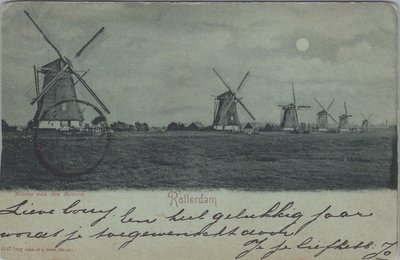 Molens aan den Boezem
Rotterdam
Lieve Corry, Een heel gelukkig jaar
wordt je toegewenscht door
Je je liefhebb. Jo